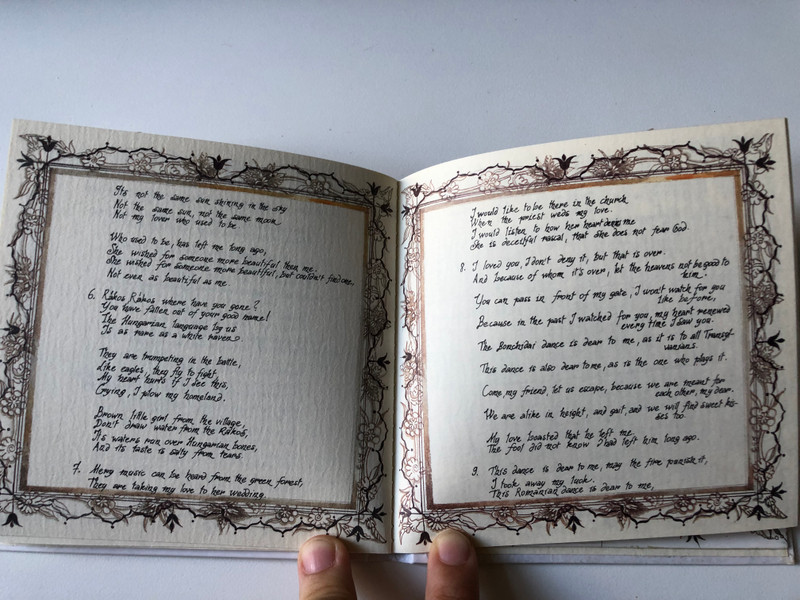 It's not the same sun shining in the sky
Not the same sun, not the same moon
Not my lover who used to be
Who used to be, has left me long ago,
She wished for someone more beautiful then me.
She wished for someone more beautiful, but couldn't find one,
Not even as beautiful as me.
6. Rákos Rákos where have you gone?
You have fallen out of your good name!
The Hungarian language by us
Is as rare as a white raven.
They are trumpeting in the battle,
Like eagles, they fly to fight.
My heart hurts if I see this,
Crying, I plow my homeland.
Brown little girl from the village,
Don't draw water from the Rákos,
It's waters ran over Hungarian bones,
And its taste is salty from tears.
7. Merry music can be heard from the green forest,
They are taking my love to her wedding.
I would like to be there in the church
When the priest weds my love.
I would listen to how her heart denies me
She is deceitful rascal, that she does not fear God.
8. I loved you, I don't deny it, but that is over.
And because of whom it's over, let the heavens not be good to
him.
You can pass in front of my gate, I won't watch for you
like before,
Because in the past I watched for you, my heart renewed
every time I saw you.
The Bonchidai dance is dear to me, as it is to all Transyl-
vanians.
This dance is also dear to me, as is the one who plays it.
Come, my friend, let us escape, because we are meant for
each other, my dear.
We are alike in height, and gait, and we will find sweet kis-
ses too.
My love boasted that he left me.
The fool did not know I had left him long ago.
9. This dance is dear to me, may the fire punish it,
I took away my luck.
This Romanian dance is dear to me,